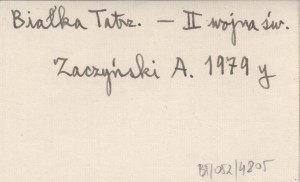 Białka Tatrz. – II wojna św.
Zaczyński A. 1979 y
BJ/052/4805